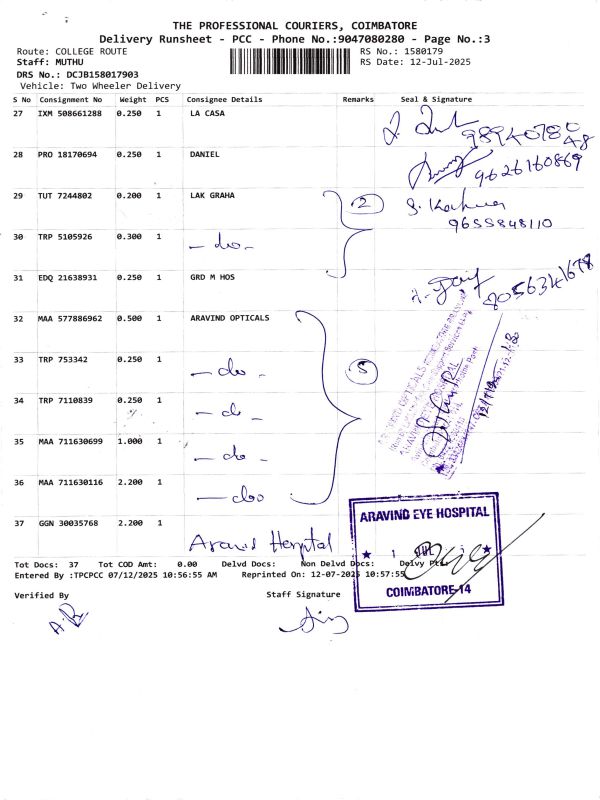 THE PROFESSIONAL COURIERS, COIMBATORE
Delivery Runsheet - PCC - Phone No.:9047080280 - Page No.:3
Route: COLLEGE ROUTE RS No.: 1580179
Staff: MUTHU RS Date: 12-Jul-2025
DRS No.: DCJB158017903
Vehicle: Two Wheeler Delivery
S No Consignment No Weight PCS Consignee Details Remarks Seal & Signature
27 IXM 508661288 0.250 1 LA CASA
28 PRO 18170694 0.250 1 DANIEL 9626160869
29 TUT 7244802 0.200 1 LAK GRAHA 2
9655848110
30 TRP 5105926 0.300 1 - do -
31 EDQ 21638931 0.250 1 GRD M HOS
32 MAA 577886962 0.500 1 ARAVIND OPTICALS
33 TRP 753342 0.250 1 - do - 5
34 TRP 7110839 0.250 1 - do -
35 MAA 711630699 1.000 1 - do -
36 MAA 711630116 2.200 1 - do
37 GGN 30035768 2.200 1 Hospital
ARAVIND EYE HOSPITAL
COIMBATORE-14
Tot Docs: 37 Tot COD Amt: 0.00 Delvd Docs: Non Delvd Docs:
Entered By :TPCPCC 07/12/2025 10:56:55 AM Reprinted On: 12-07-2025 10:57:55
Verified By Staff Signature